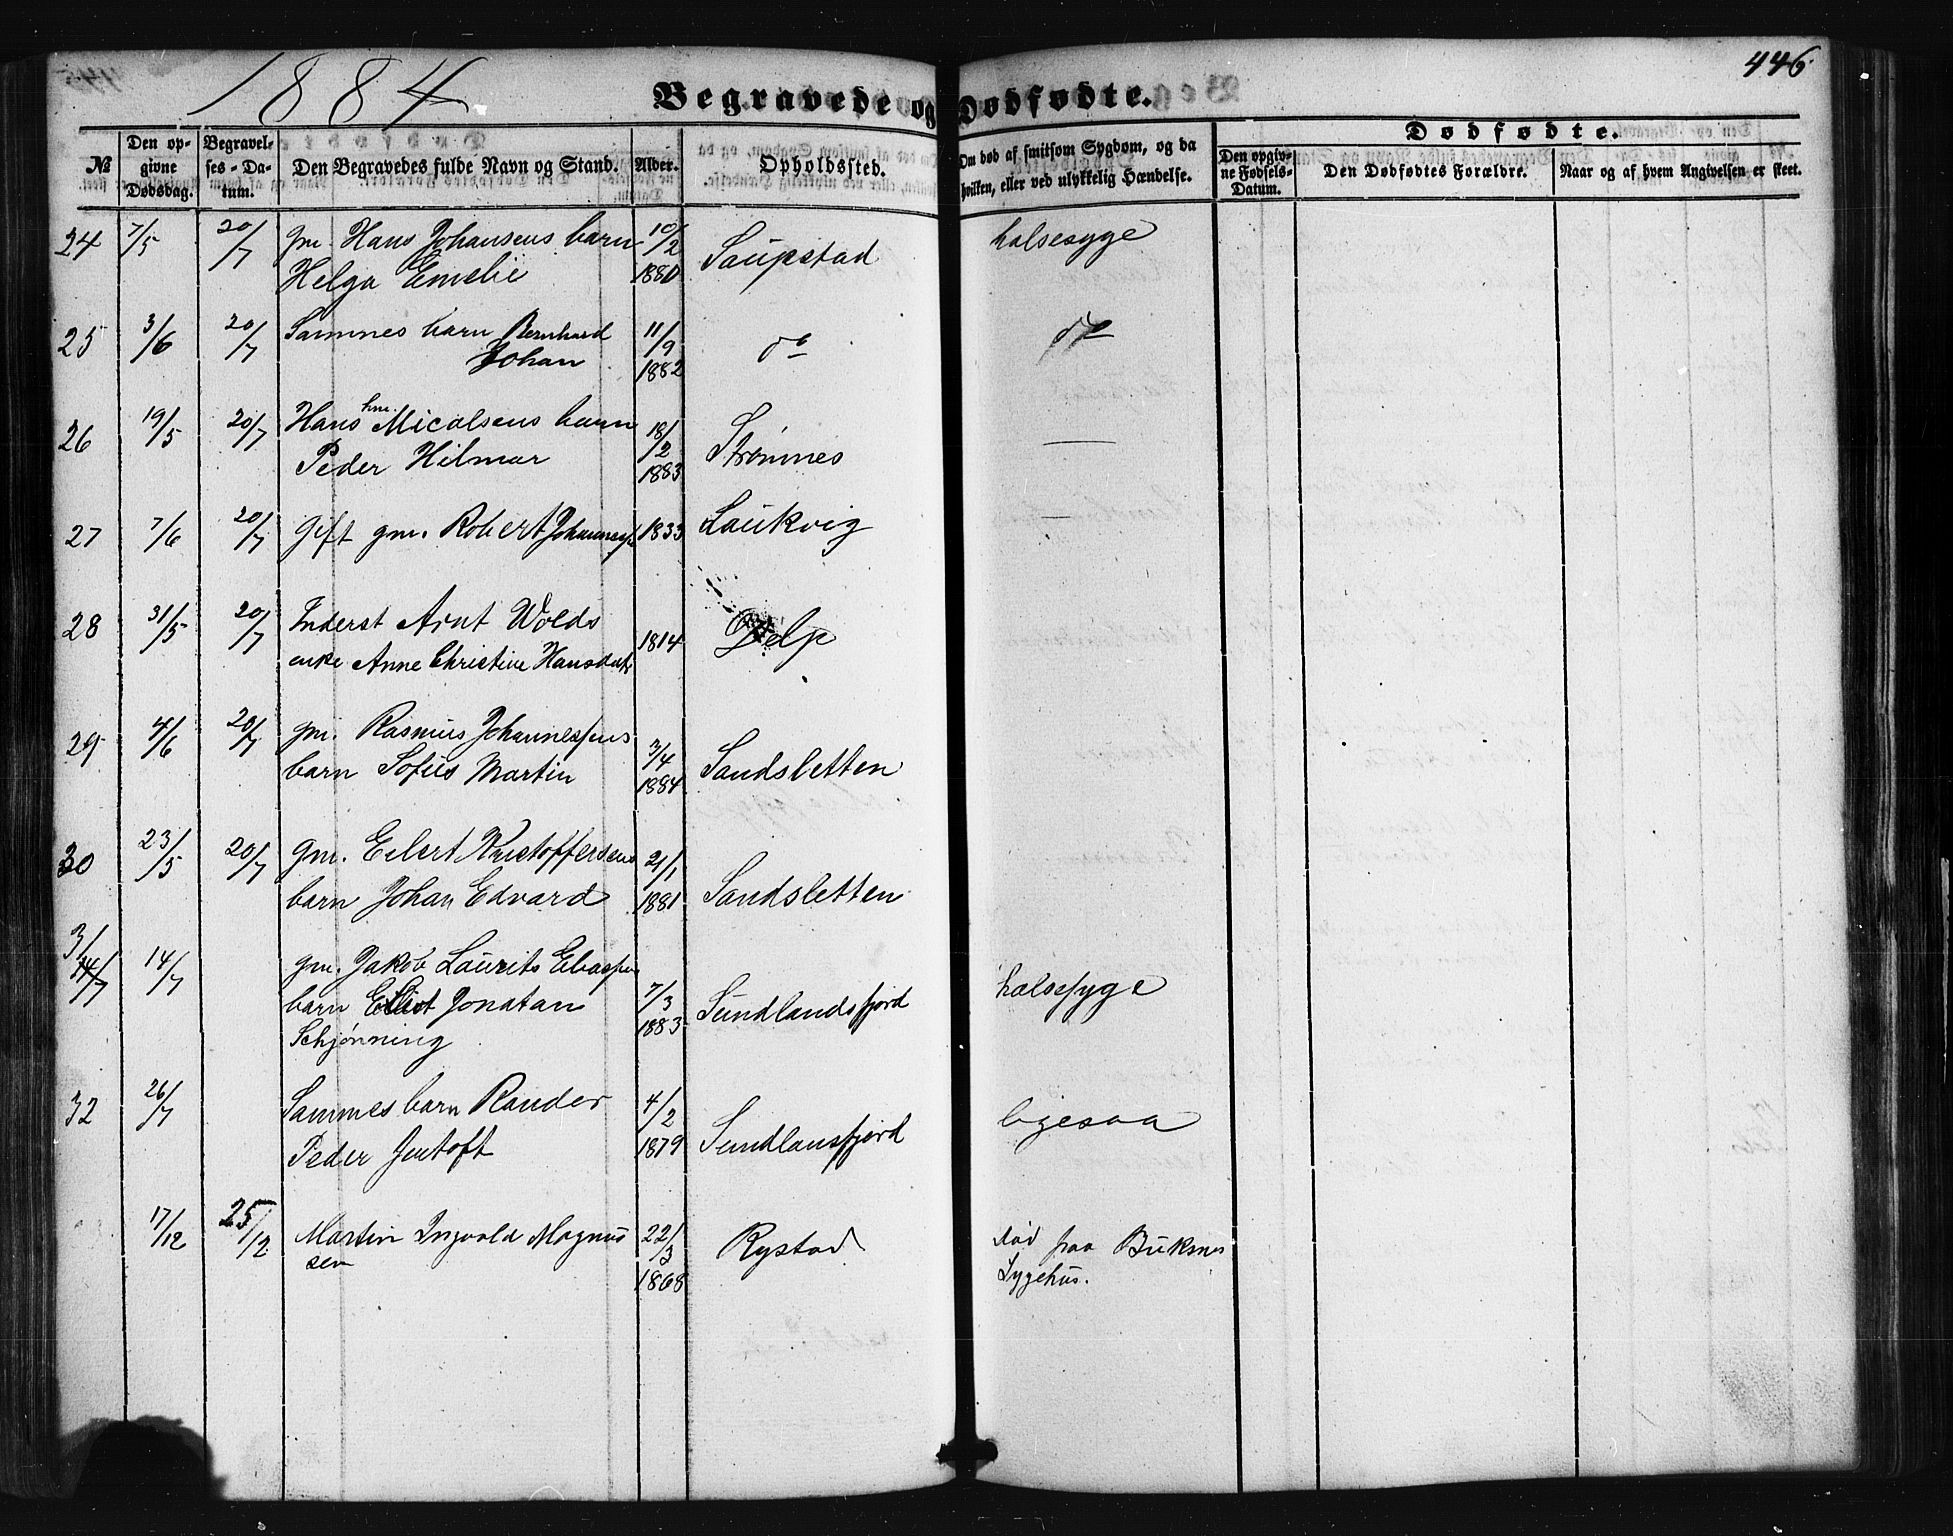 1884
446
Begravede og Dødfødte.
Dødfødte.
№
Den opgivne Dødsdag.
Begravelses-Datum.
Den Begravedes fulde Navn og Stand.
Alder.
Opholdssted.
Om død af smitsom Sygdom, og da hvilken, eller ved ulykkelig Hændelse.
Den opgivne Fødsels-Datum.
Den Dødfødtes Forældre.
Naar og af hvem Angivelsen er skeet.
24 7/5 20/7 gm. Hans Johansens barn 10/2 Saupstad halsesyge
Helga Emelie 1880
25 3/6 20/7 Sammes barn Bernhard 11/9 do do
Johan 1882
26 19/5 20/7 Hans hm. Micalsens barn 18/2 Strømnes —
Peder Hilmar 1883
27 7/6 20/7 Gift gm. Robert Johannes 1833 Laukvig —
28 31/5 20/7 Inderst Arnt Wolds 1814 Delp
enke Anne Christine Hansdatr
29 4/6 20/7 gm. Rasmus Johannessens 3/4 Sandsletten
barn Sofus Martin 1884
30 23/5 20/7 gm. Eilert Kristoffersens 21/1 Sandsletten
barn Johan Edvard 1881
31 14/7 14/7 gm. Jakob Laurits
barn Jonatan 7/3 Sundlandsfjord halsesyge
Schjønning 1883
32 26/7 Sammes barn Rander 4/2 Sundlansfjord ligesaa
Peder Jentoft 1879
17/12 25/12 Martin Ingvald Magnus 22/3 Rystad Død paa Buksnes
sen 1868 Sygehus.